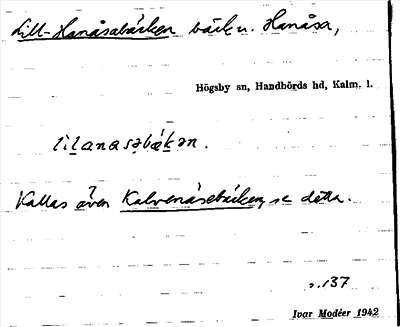 Lill-Hanåsabäcken bäck n. Hanåsa,
Högsby sn, Handbörds hd, Kalm. l.
lilanasəbäkən.
Kallas även Kalvenäsebäcken, se detta.
s. 137
Ivar Modéer 1942